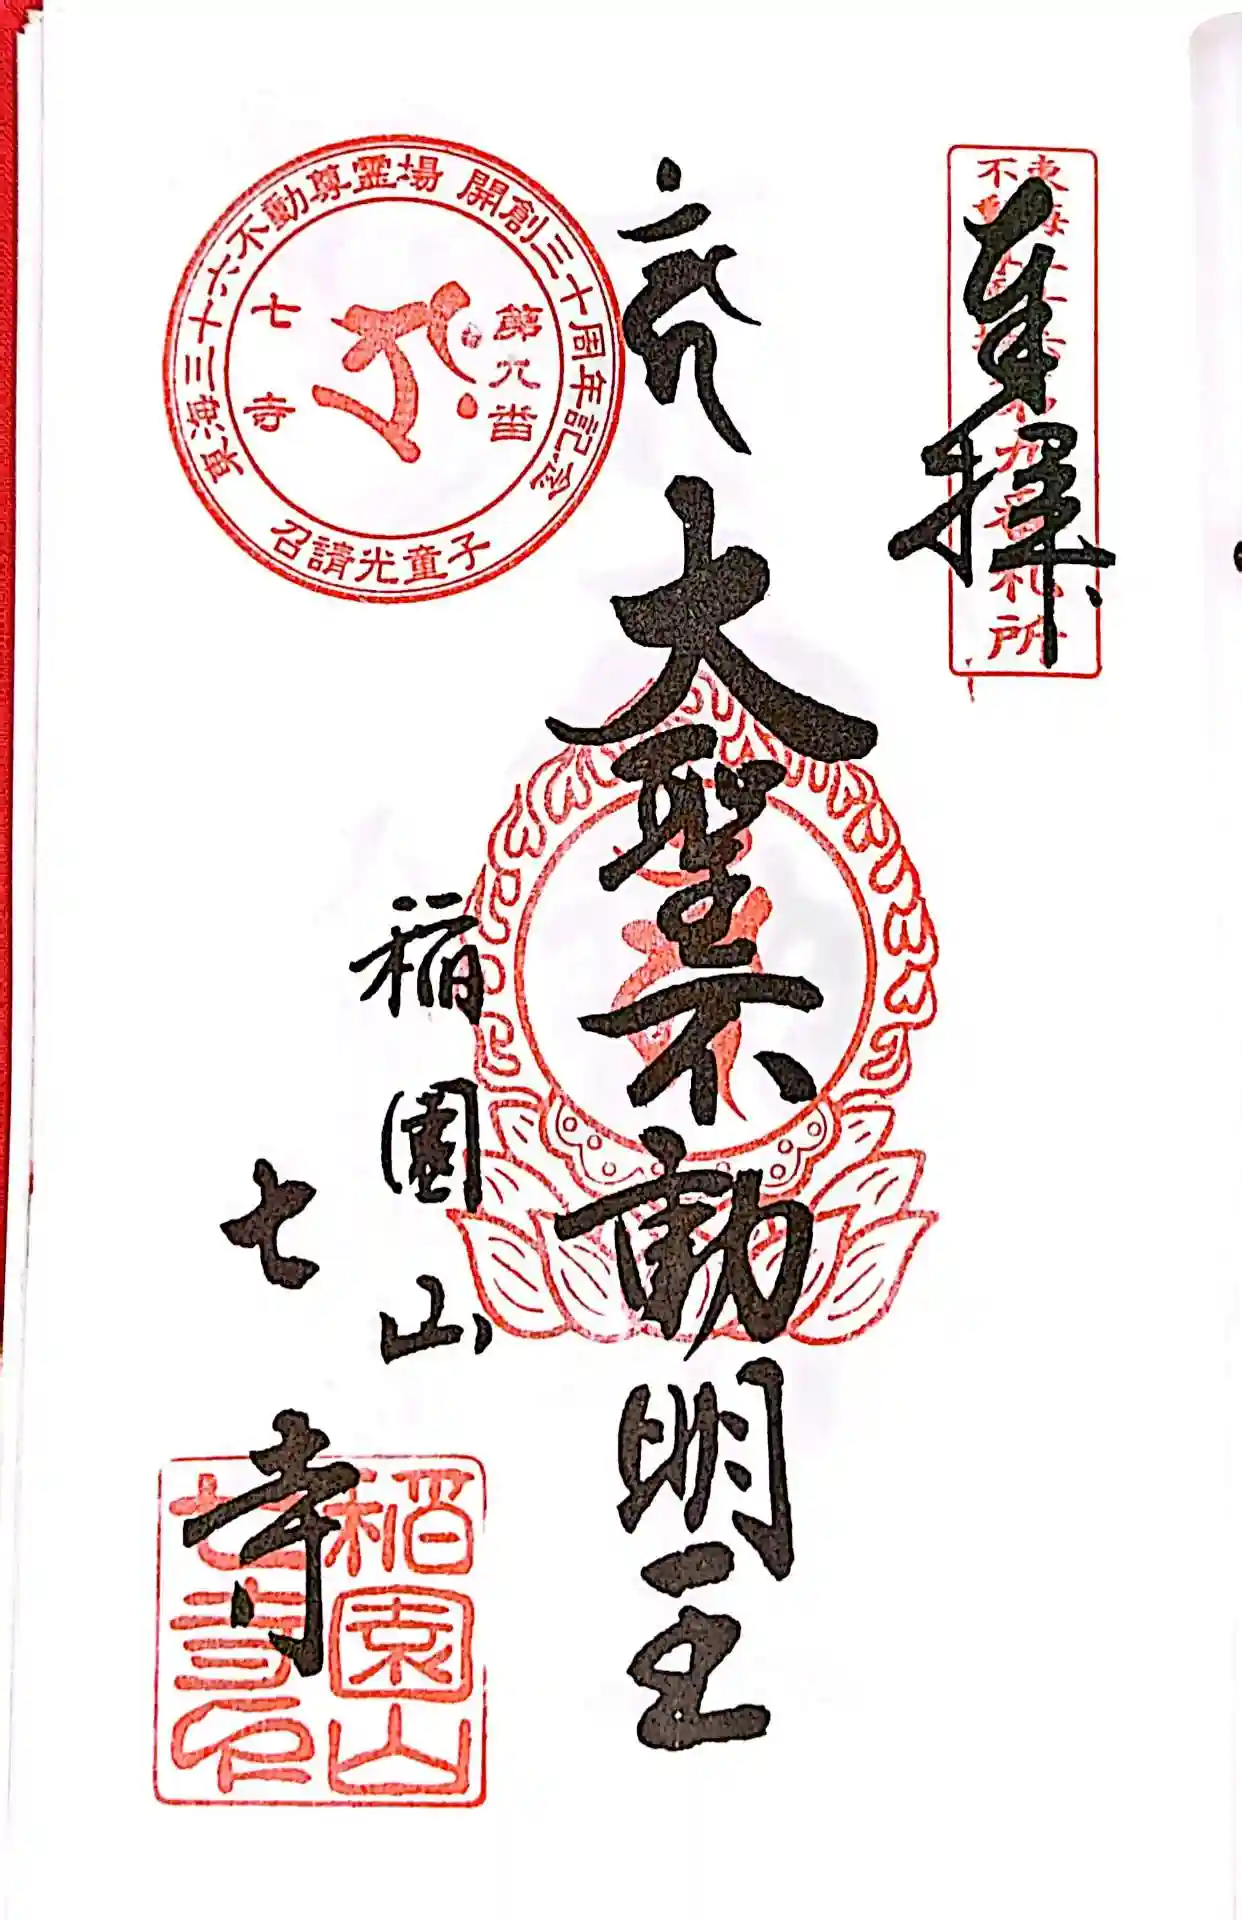 奉拝
東海三十六
不動尊霊場第九番札所
大聖不動明王
稲園山
七寺
東海三十六不動尊霊場 開創三十周年記念
召請光童子
第九番
七寺
稲園山
七寺印